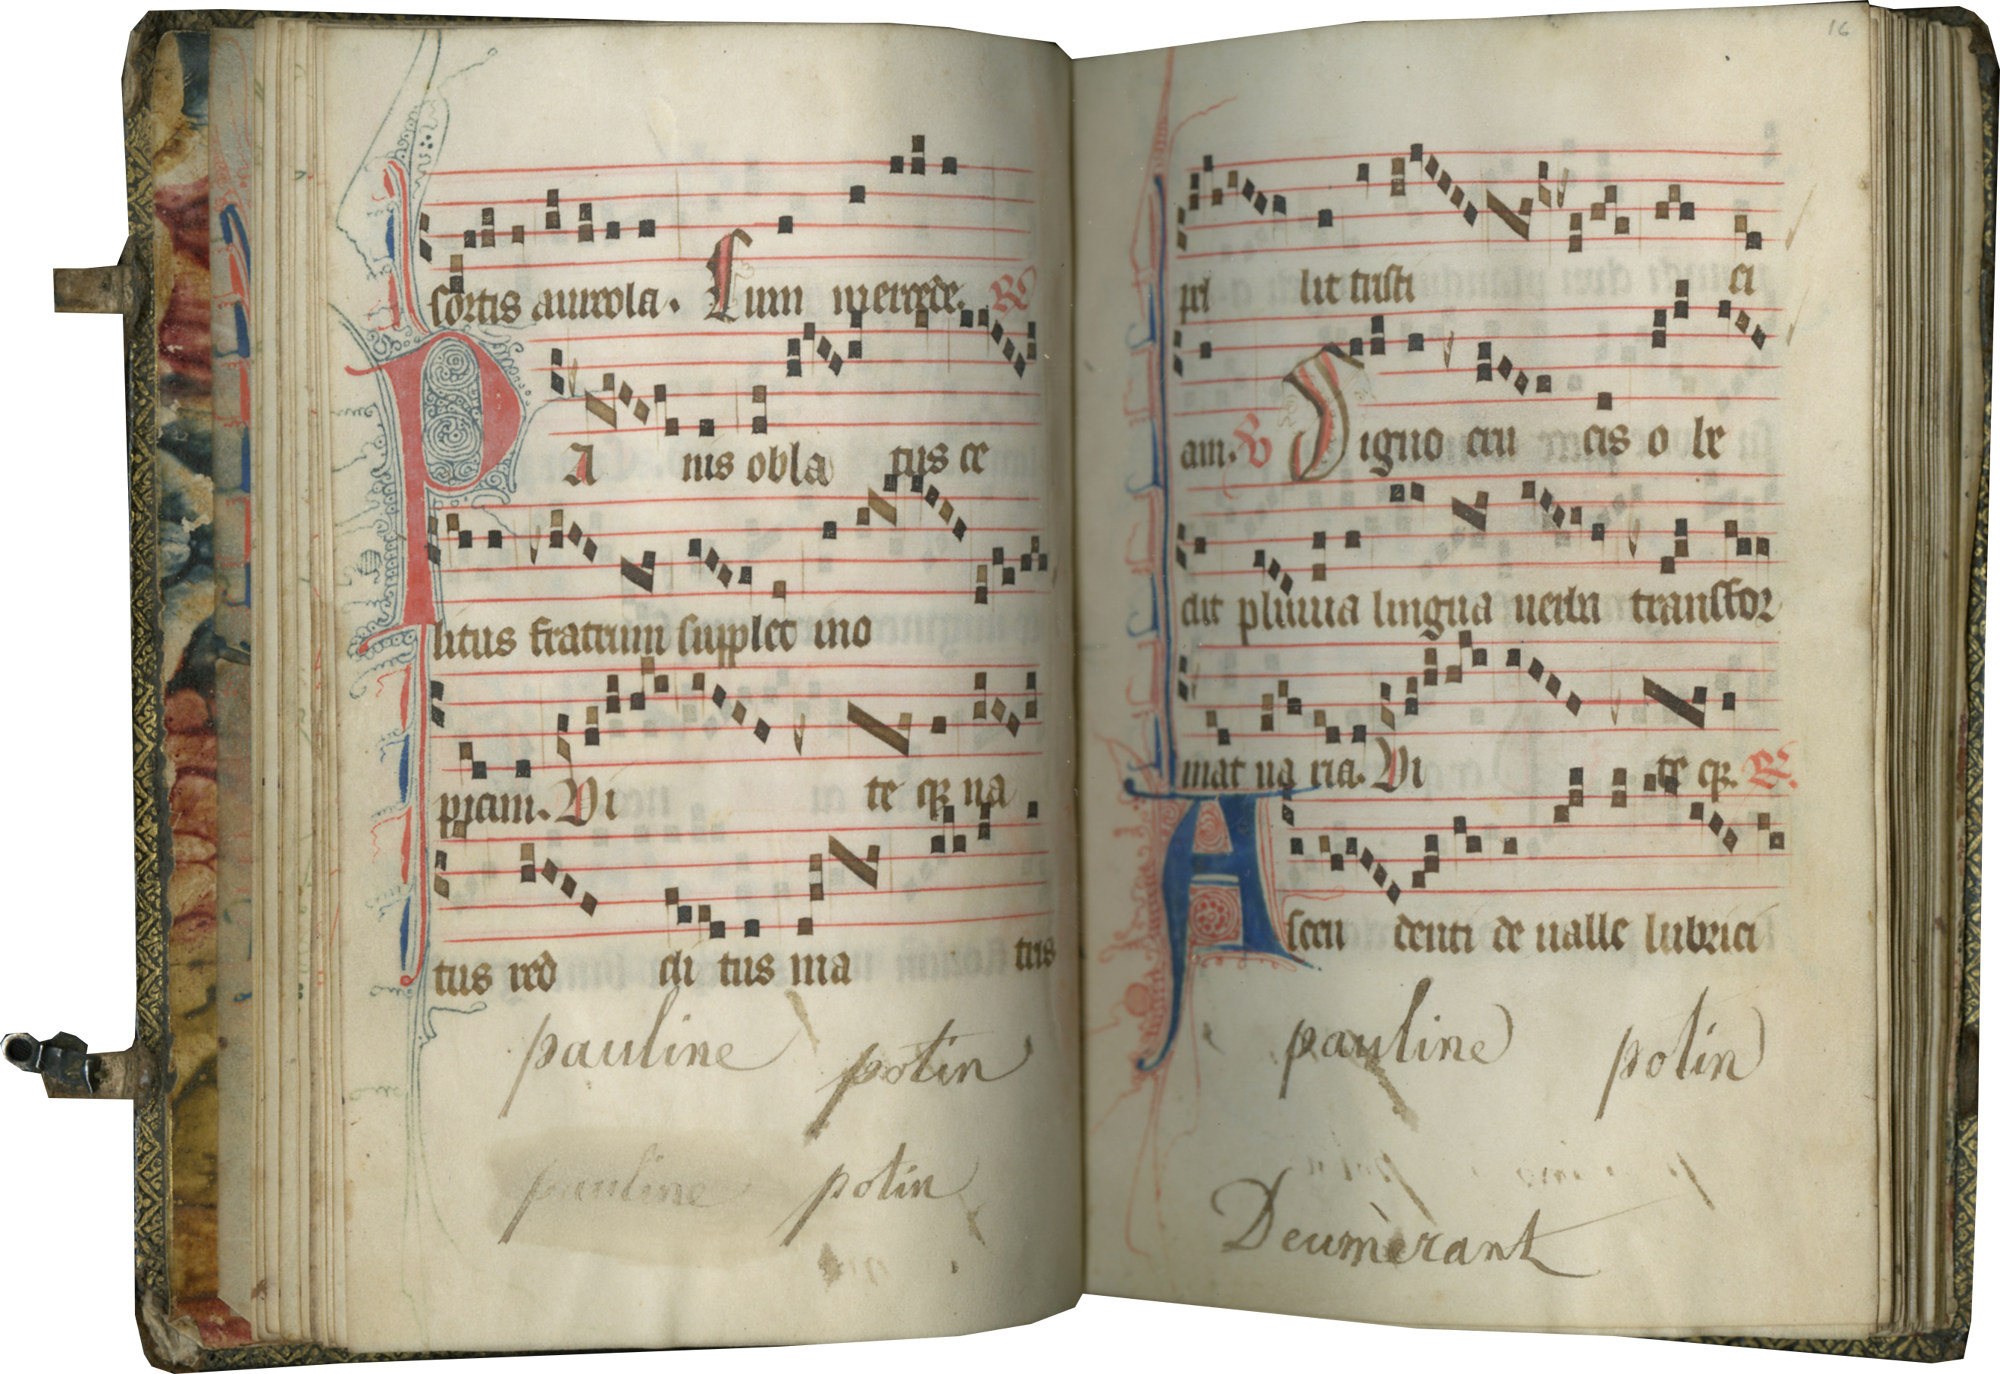 sortis aureola. Cum mercede. R
PA nis obla tus ce
litus fratrum supplet ino
piam. Vi te qz na
tus red di tus ma tris
pauline potin
pauline potin
16
pel lit tristi ci
am. V Signo cru cis o le
dit pluuia lingua uerbi transfor
mat ua ria. Vi te qz. R.
Ascen denti de ualle lubrici
pauline potin
Deumèrant